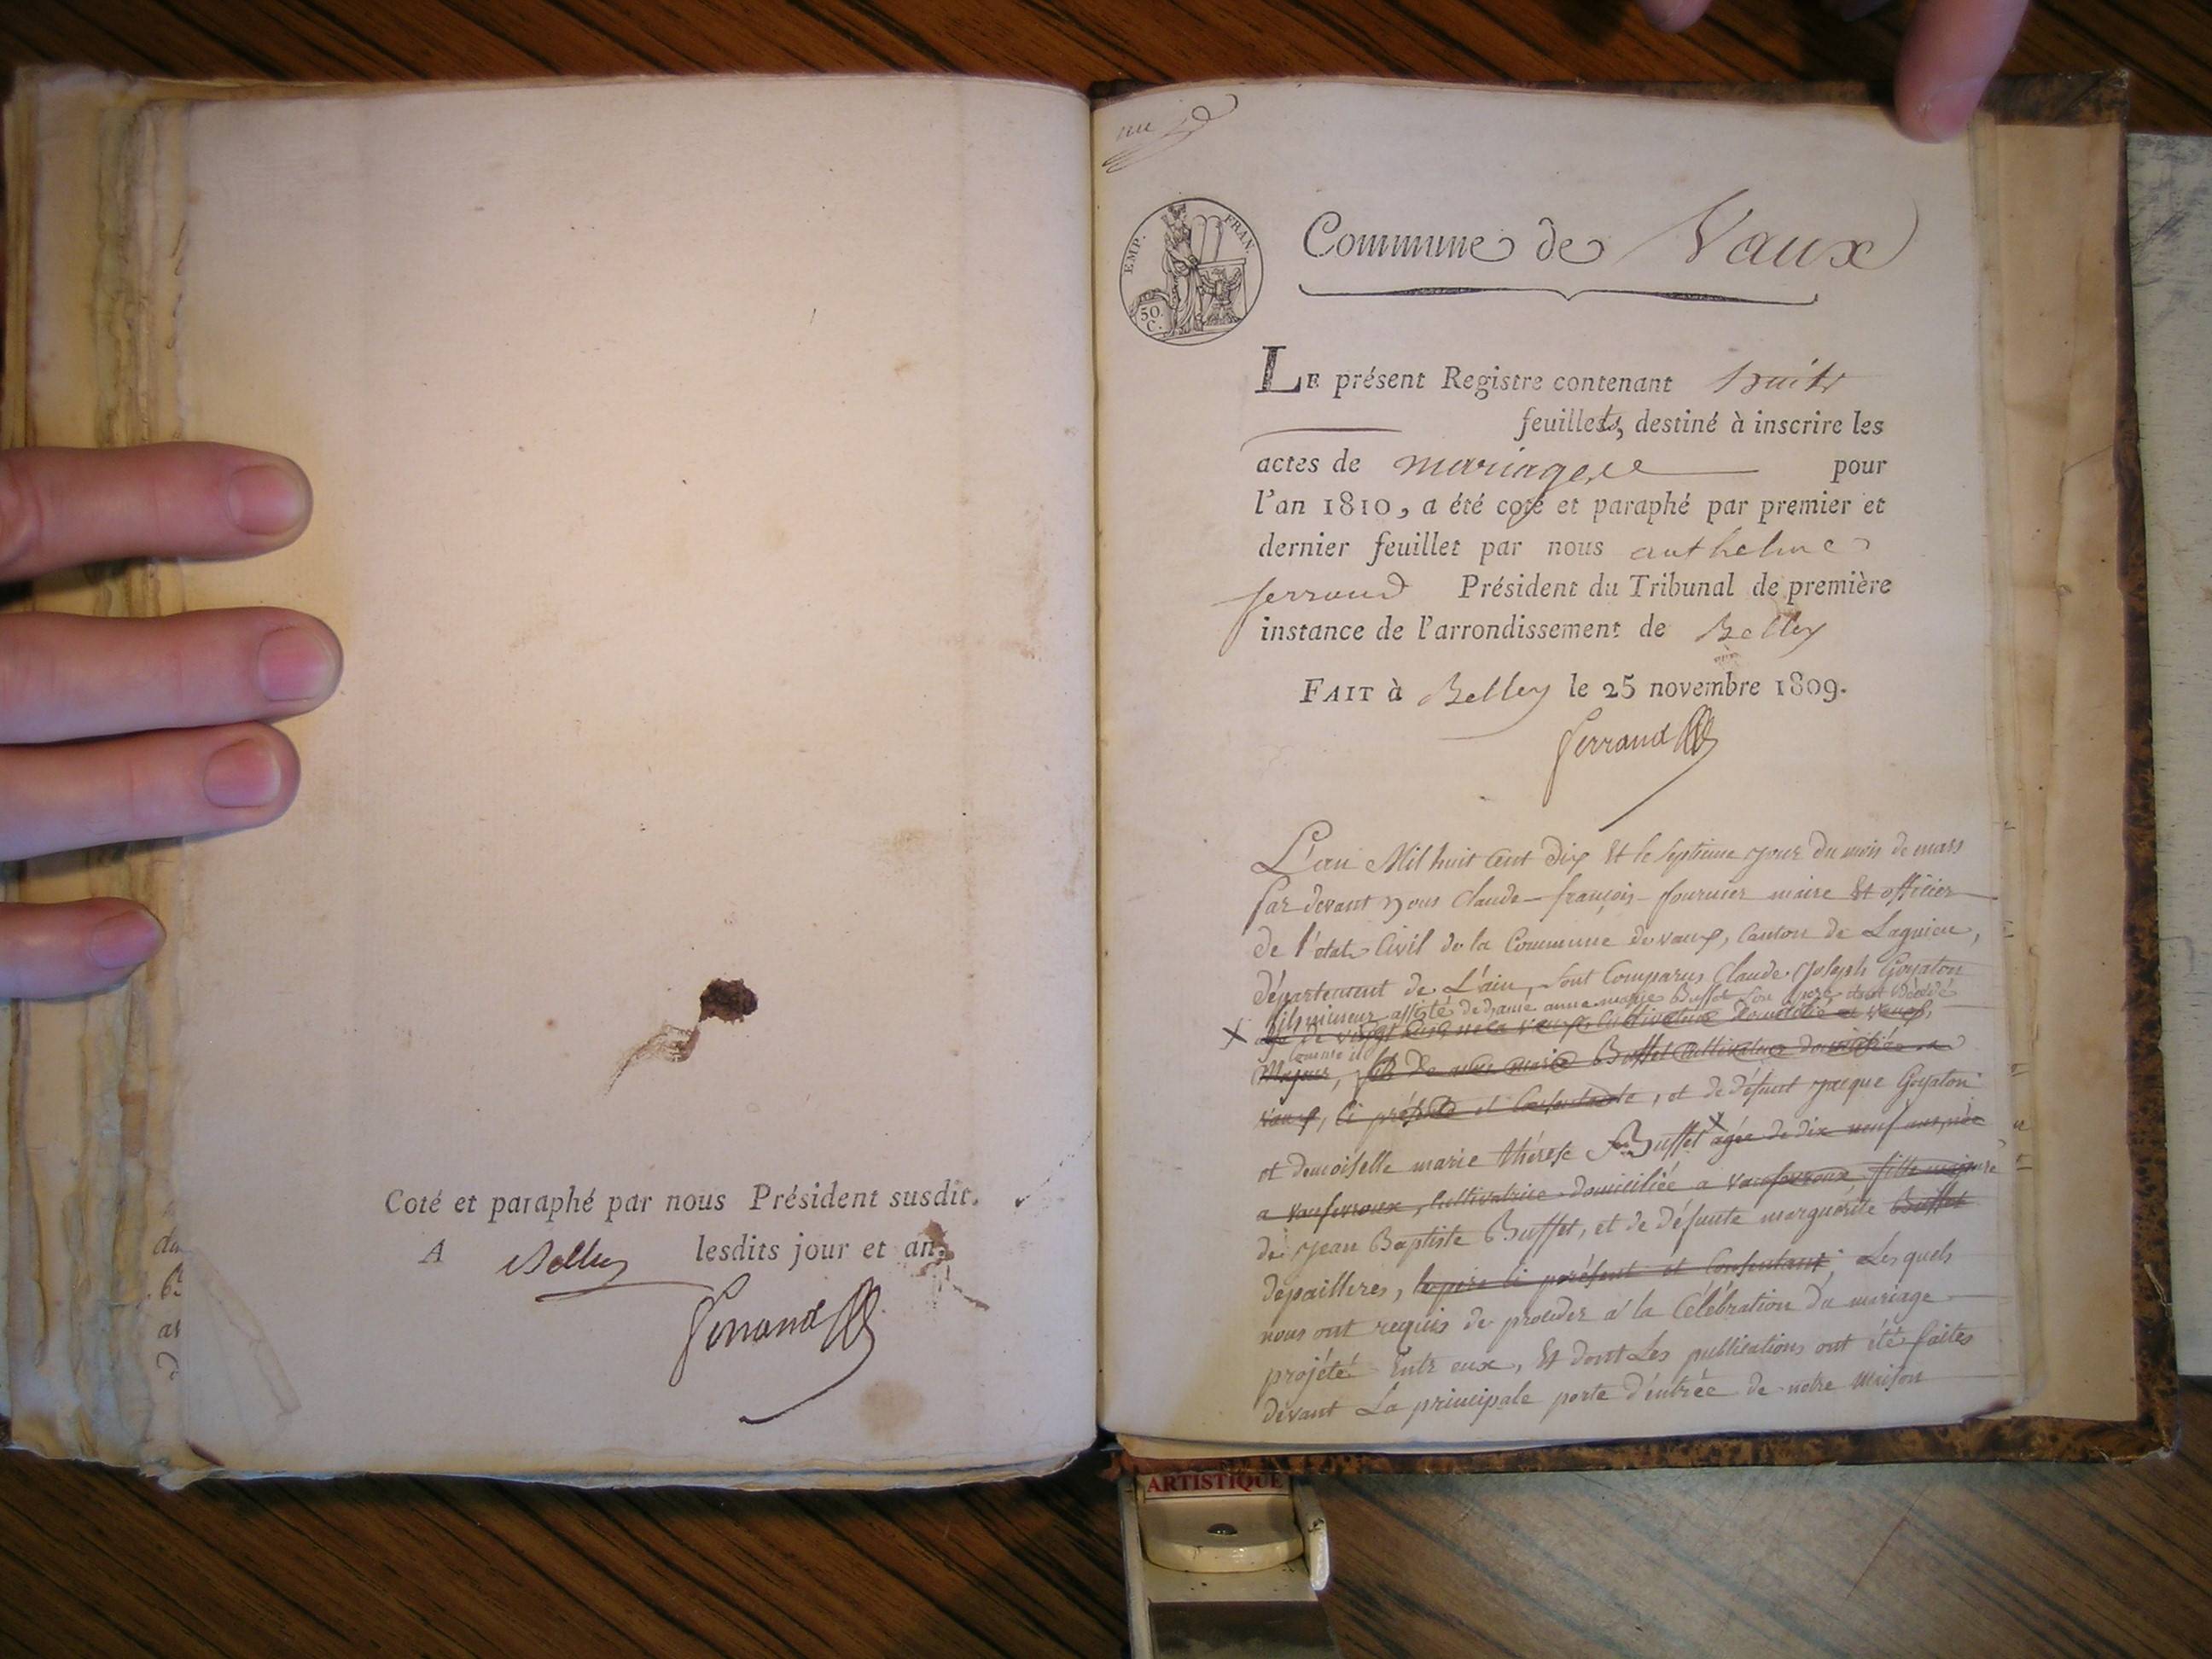 Coté et paraphé par nous Président susdit.
A Belley lesdits jour et an.
Ferrand
EMP. FRAN.
50.
C.
Commune de Vaux
LE présent Registre contenant huit
feuillets, destiné à inscrire les
actes de mariage pour
l'an 1810, a été coté et paraphé par premier et
dernier feuillet par nous anthelme
ferrand Président du Tribunal de première
instance de l'arrondissement de Belley
FAIT à Belley le 25 novembre 1809.
Ferrand
L'an Mil huit Cent Dix Et le septieme jour du mois de mars
Par devant Nous Claude-françois-fournier maire Et officier
de l'état Civil de la Commune de vaux, Canton de Lagnieu,
département de L'ain, sont Comparus Claude Joseph Goyaton
fils mineur assisté de dame anne marie Buffet son
cultivateur Domicilié a vaux,
Majeur, fils de anne marie Buffet Cultivatrice domiciliée a
vaux, ci présente et Consentante, et de défunt Jacque Goyaton
et demoiselle marie thérese Buffet agée de dix neuf ans, née
a vaufevroux, Cultivatrice domiciliée a vaufevroux, fille majeure
de Jean Baptiste Buffet, et de défunte marguerite Buffet
depailleres, le père ci présent et Consentant, Lesquels
nous ont requis de proceder a la Célébration du mariage
projété Entr eux, Et dont Les publications ont été faites
devant La principale porte d'entrée de notre Maison
ARTISTIQUE